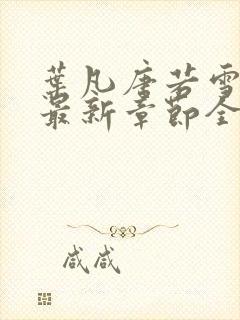 葉凡唐若雪
最新章節全
咸咸